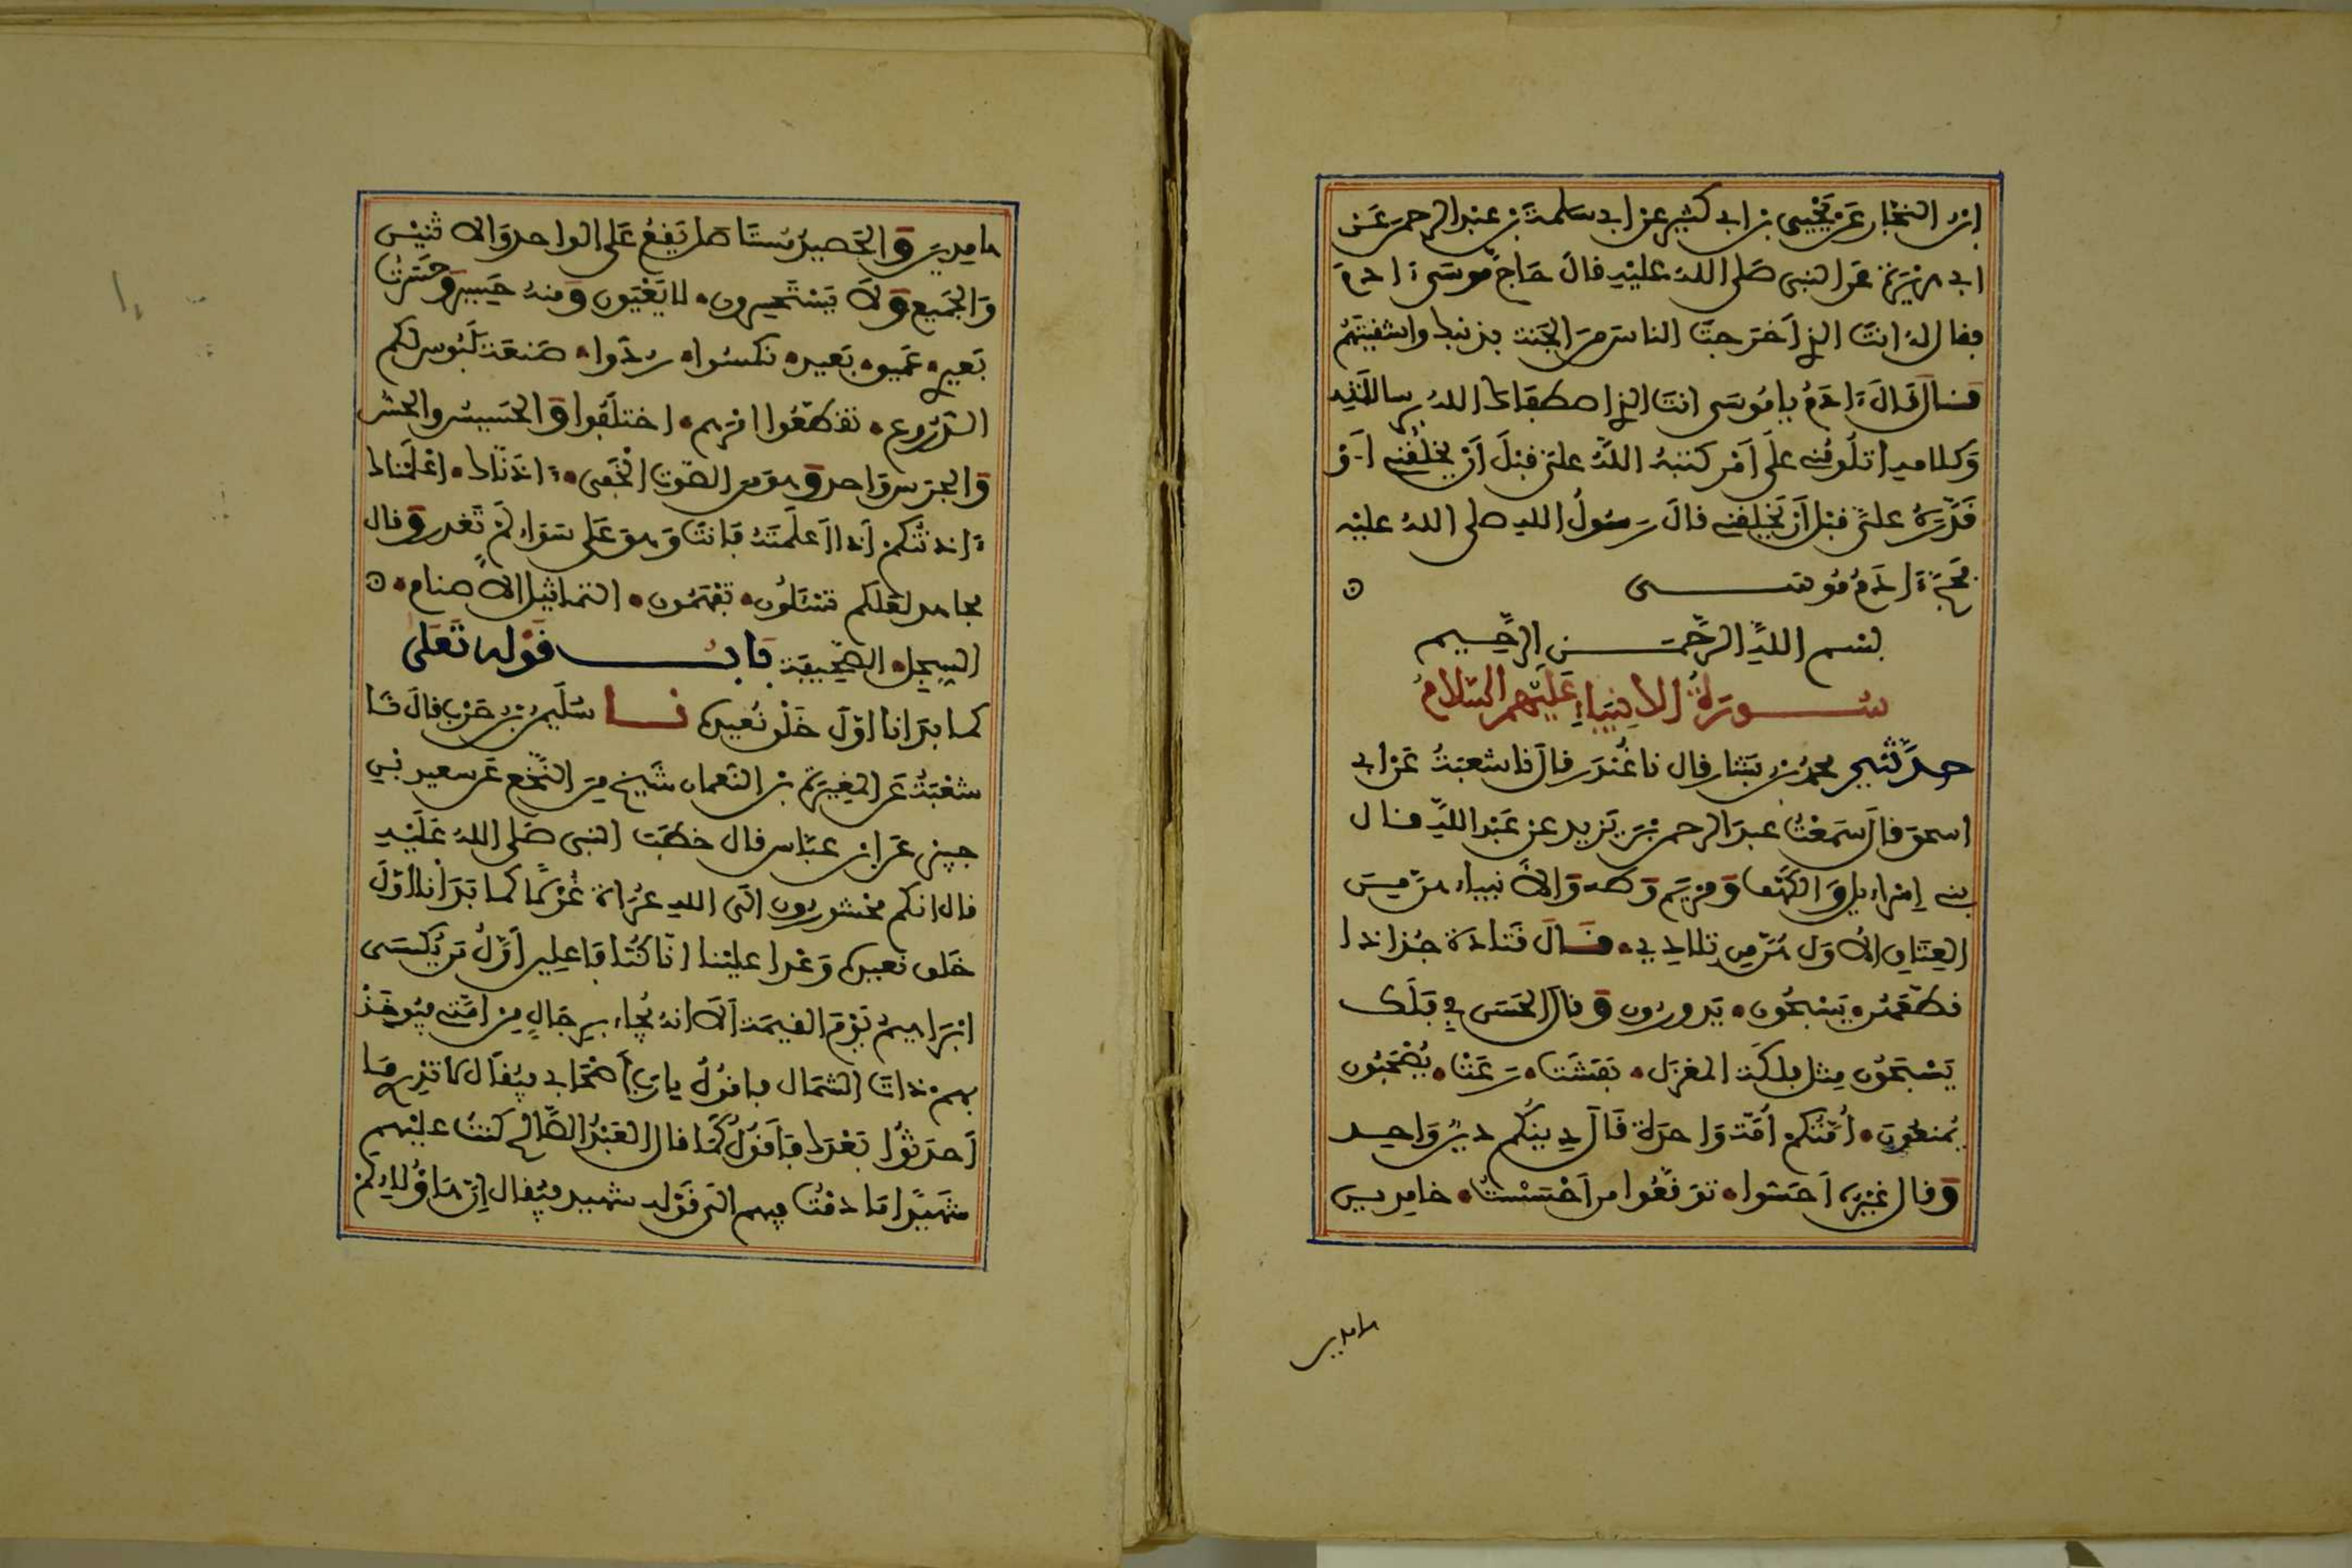 ابن النجار عن يحيى بن ابي كثير عن ابي سلمة بن عبد الرحمن عن
ابي هريرة عن النبي صلى الله عليه قال حاج موسى ءادم
فقال له انت الذي اخرجت الناس من الجنة بذنبك واشقيتهم
قال قال ءادم يا موسى انت الذي اصطفاك الله برسالته
وكلامه اتلومني على امر كتبه الله علي قبل ان يخلقني او
قدره علي قبل ان يخلقني قال رسول الله صلى الله عليه
فحج ءادم موسى
بسم الله الرحمن الرحيم
سورة الانبياء عليهم السلام
حدثني محمد بن بشار قال نا غندر قال نا شعبة عن ابي
اسحق قال سمعت عبد الرحمن بن يزيد عن عبد الله قال
بني إسراءيل والكهف ومريم وطه والانبياء هن من
العتاق الاول وهن من تلادي قال قتادة جذاذا
قطعهن يسبحون يدورون وقال الحسن في فلك
يسبحون مثل فلكة المغزل نفشت رعت يصحبون
يمنعون أمتكم أمة واحدة قال دينكم دين واحد
وقال غيره احسوا توقعوا من احسست خامدين
هامدين
هامدين والحصيد مستاصل يقع على الواحد والاثنين
والجميع ولا يستحسرون لا يعيون ومنه حسير وحسرت
بعيري عميق بعيد نكسوا ردوا صنعة لبوس لكم
الدروع تقطعوا امرهم اختلفوا والحسيس والحس
والجرس واحد وهو من الصوت الخفي ءاذناك اعلمناك
ءاذنتكم اذا اعلمته فانت وهو على سواء لم تغدر وقال
مجاهد لعلكم تسئلون تفهمون التماثيل الاصنام
السجل الصحيفة باب قوله تعلى
كما بدانا اول خلق نعيده نا سليمن بن حرب قال نا
شعبة عن المغيرة بن النعمان شيخ من النخع عن سعيد بن
جبير عن ابن عباس قال خطب النبي صلى الله عليه
قال انكم محشورون الى الله عراة غرلا كما بدأنا أول
خلق نعيده وعدا علينا انا كنا فاعلين اول من يكسى
ابراهيم يوم القيمة ألا انه يجاء برجال من امتي فيوخذ
بهم ذات الشمال فاقول يا رب أصحابي فيقال لا تدري ما
أحدثوا بعدك فاقول كما قال العبد الصالح كنت عليهم
شهيدا ما دمت فيهم الى قوله شهيد فيقال إن هاؤلاء لم